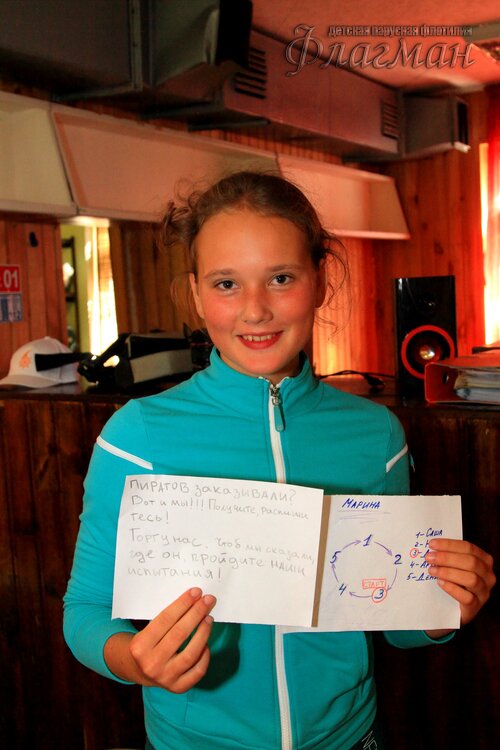 детская парусная флотилия
Флагман
.01
ПИРАТОВ ЗАКАЗЫВАЛИ?
Вот и мы!!! Получите, распиши
тесь!
Торг у нас, чтоб мы сказали,
где он, пройдите наши
испытания!
МАРИНА
1
2
3
4
5
СТАРТ
1- Саша
2-
3-
4- Ар
5- Дени